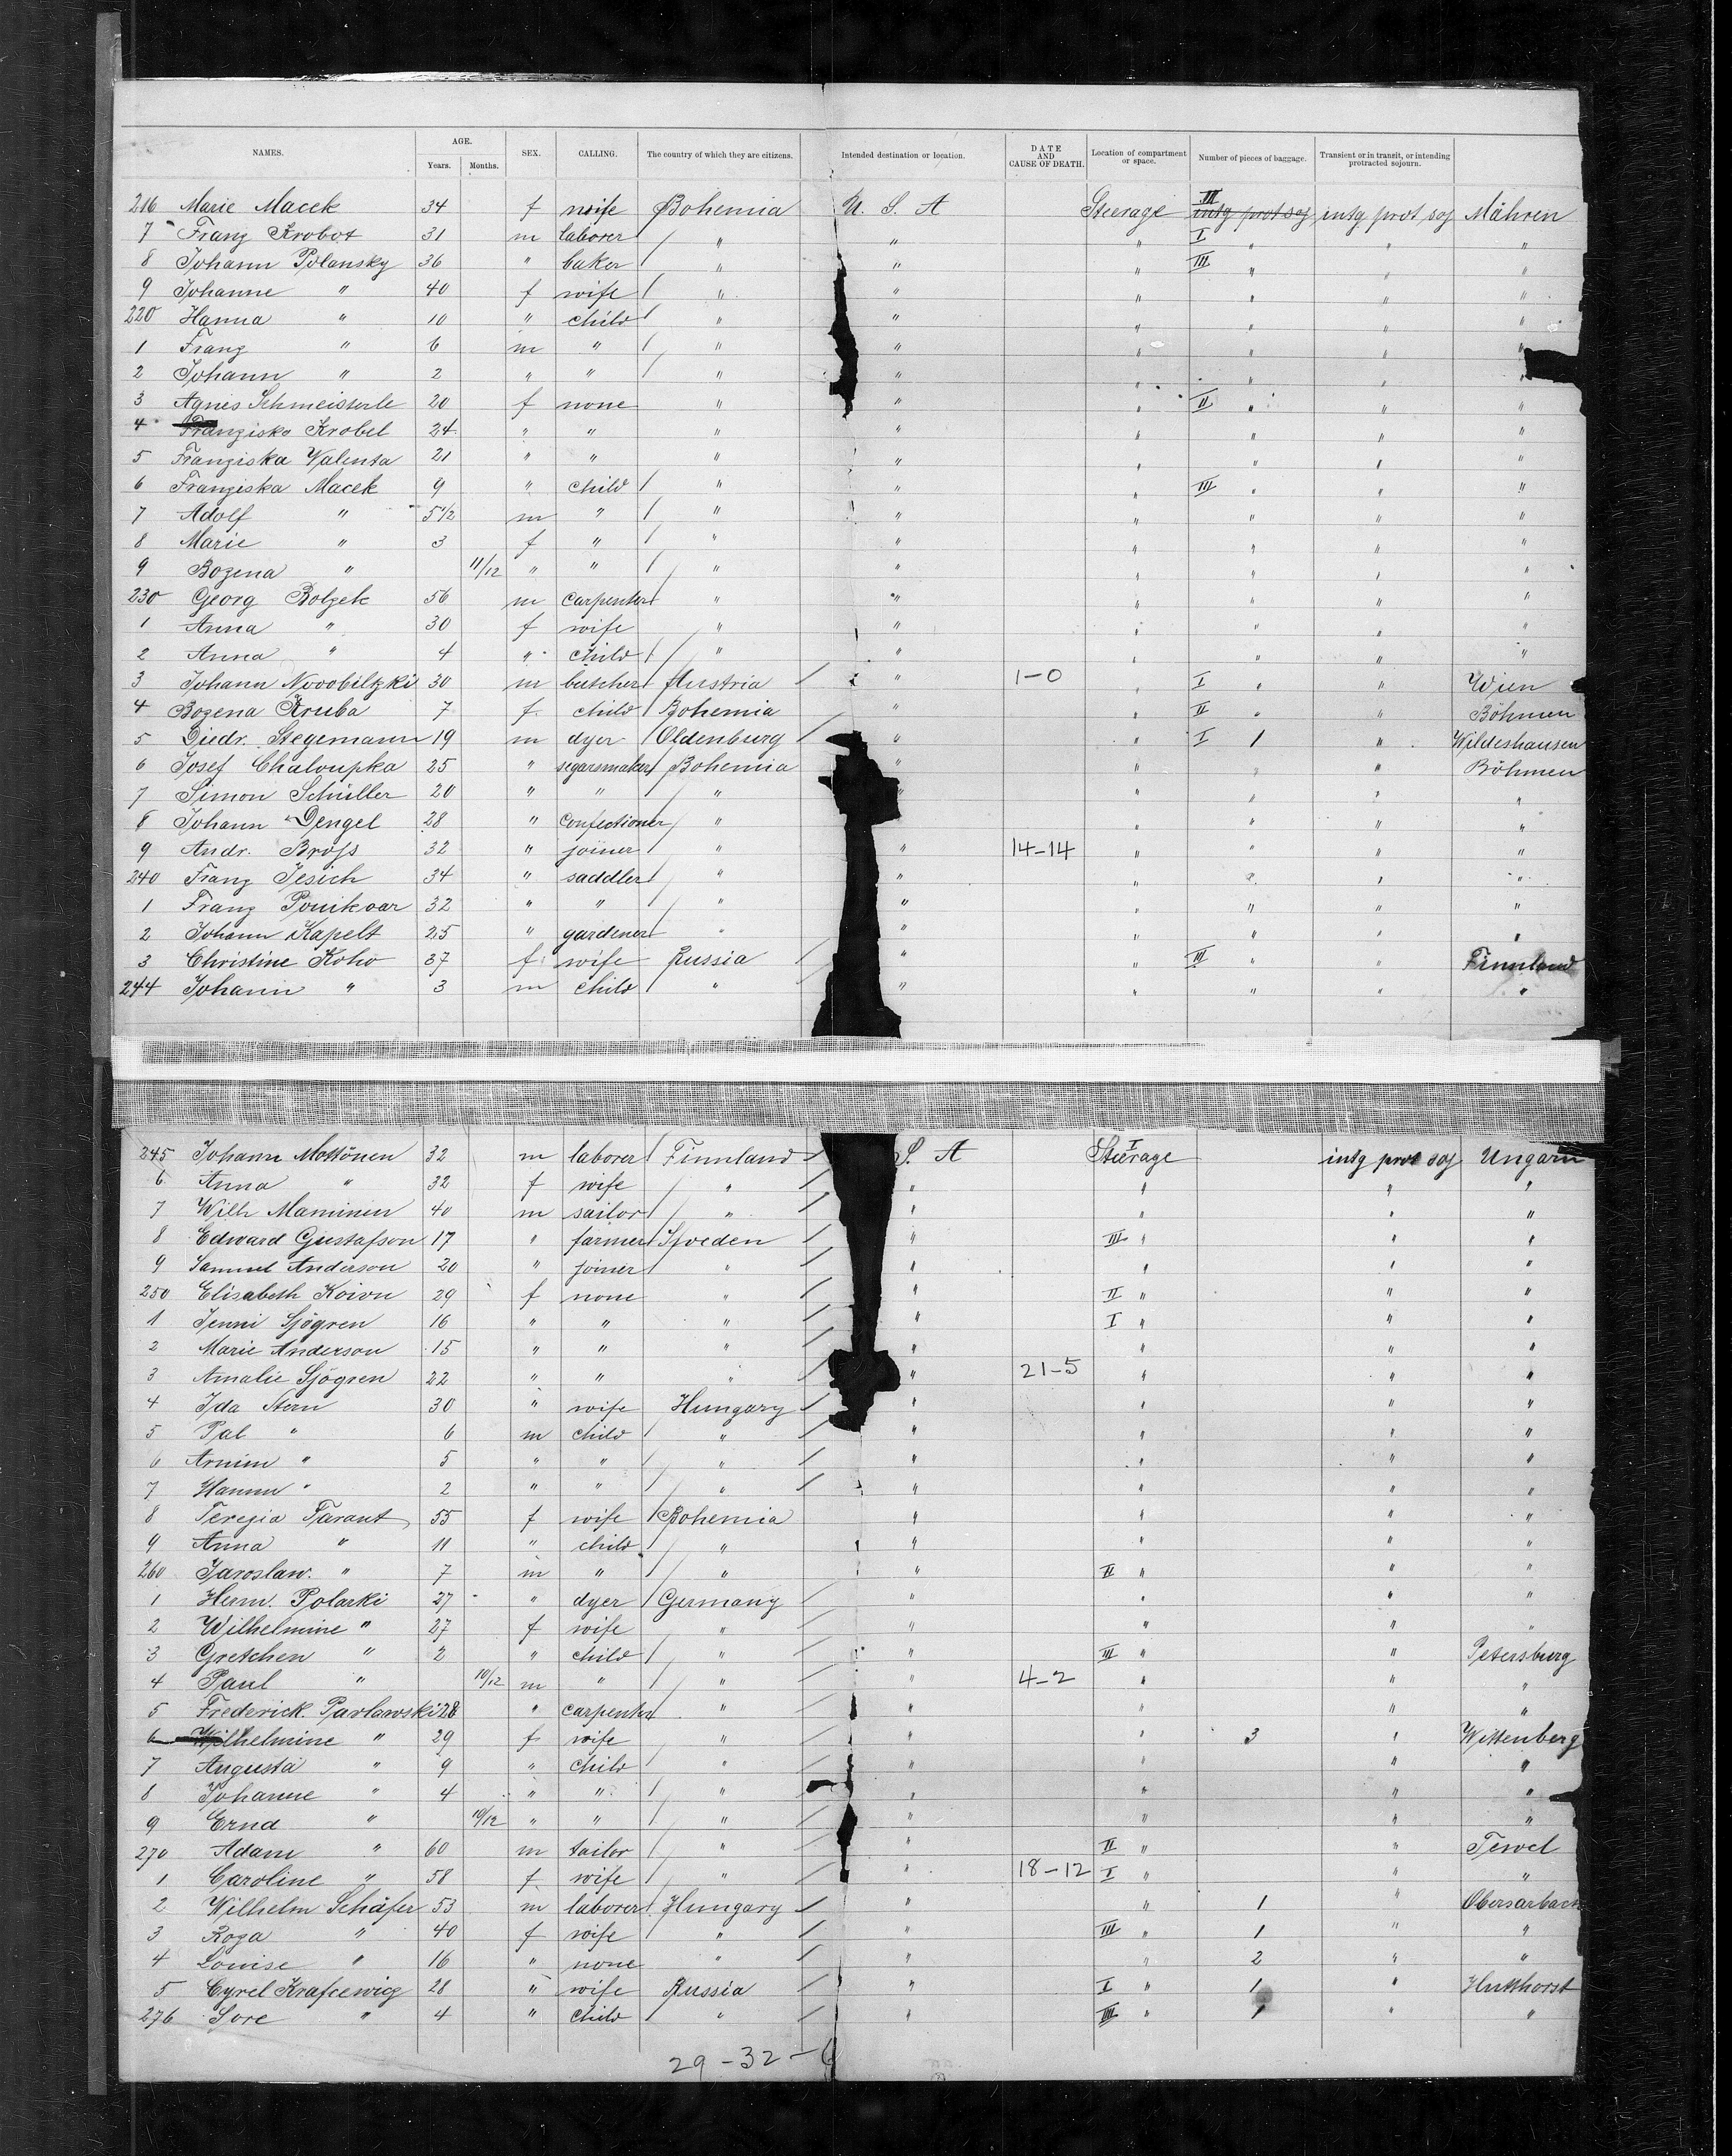 NAMES. AGE. Years. Months. SEX. CALLING. The country of which they are citizens. Intended destination or location. DATE AND CAUSE OF DEATH. Location of compartment or space. Number of pieces of baggage. Transient or in transit, or intending protracted sojourn.
216 Marie Macek 34 f wife Bohemia U. S. A Steerage III intg prot soj intg prot soj Mähren
7 Franz Krobot 31 m laborer " " " I " " "
8 Johann Polansky 36 " baker " " " III " " "
9 Johanne " 40 f wife " " " " " "
220 Hanna " 10 " child " " " " "
1 Franz " 6 m " " " " " " "
2 Johann " 2 " " " " " " " "
3 Agnes Schmeisterle 20 f none " " " II " " "
4 Franziska Krobel 24 " " " " " " " "
5 Franziska Valenta 21 " " " " " " " "
6 Franziska Macek 9 " child " " " III " " "
7 Adolf " 5 1/2 m " " " " " " "
8 Marie " 3 f " " " " " " "
9 Bozena " 11/12 " " " " " " " "
230 Georg Bolzek 56 m carpenter " " " " " "
1 Anna " 30 f wife " " " " " "
2 Anna " 4 " child " " " " " "
3 Johann Novobilzki 30 m butcher Austria " 1-0 " I " " Wien
4 Bozena Kruba 7 f child Bohemia " " II " " Böhmen
5 Diedr. Stegemann 19 m dyer Oldenburg " " I 1 " Wildeshausen
6 Josef Chaloupka 25 " segarsmaker Bohemia " " " " Böhmen
7 Simon Schüller 20 " " " " " " " "
8 Johann Dengel 28 " confectioner " " " " "
9 Andr. Bross 32 " joiner " " 14-14 " " " "
240 Franz Jesich 34 " saddler " " " " " "
1 Franz Ponikvar 32 " " " " " " " "
2 Johann Kapelt 25 " gardener " " " " " "
3 Christine Koho 37 f wife Russia " " III " " Finnland
244 Johann " 3 m child " " " " " "
245 Johann Mottönen 32 m laborer Finnland S. A I Steerage intg prot soj Ungarn
6 Anna " 32 f wife " " " " "
7 Wilh Maminen 40 m sailor " " " " "
8 Edward Gustafson 17 " farmer Sweden " III " " "
9 Samuel Anderson 20 " joiner " " " " "
250 Elisabeth Koivu 29 f none " " II " " "
1 Jenni Sjögren 16 " " " " I " " "
2 Marie Anderson 15 " " " " " " "
3 Amalie Sjögren 22 " " " " 21-5 " " "
4 Ida Stern 30 " wife Hungary " " " "
5 Pal " 6 m child " " " " "
6 Armin " 5 " " " " " " "
7 " 2 " " " " " " "
8 Terezia Tarant 55 f wife Bohemia " " " "
9 Anna " 11 " child " " " " "
260 Jaroslaw. " 7 m " " " II " " "
1 Herm. Polarki 27 " dyer Germany " " " "
2 Wilhelmine " 27 f wife " " " " "
3 Gretchen " 2 " child " " III " " Petersburg
4 Paul " 10/12 m " " " 4-2 " " "
5 Frederick. Pavlowski 28 " carpenter " " " " "
6 Wilhelmine " 29 f wife " " " 3 " Wittenberg
7 Augusta " 9 " child " " " " "
8 Johanne " 4 " " " " " " "
9 Erna " 10/12 " " " " " " "
270 Adam " 60 m tailor " " II " " Tewel
1 Caroline " 58 f wife " " 18-12 I " " "
2 Wilhelm Schäfer 53 m laborer Hungary " " 1 " Obersarbach
3 Roza " 40 f wife " " III " 1 " "
4 Louise " 16 " none " " " 2 " "
5 Cyrel Krafcewicz 28 " wife Russia " I " 1 " Hutthorst
276 Sore " 4 " child " " III " 1 " "
29-32-